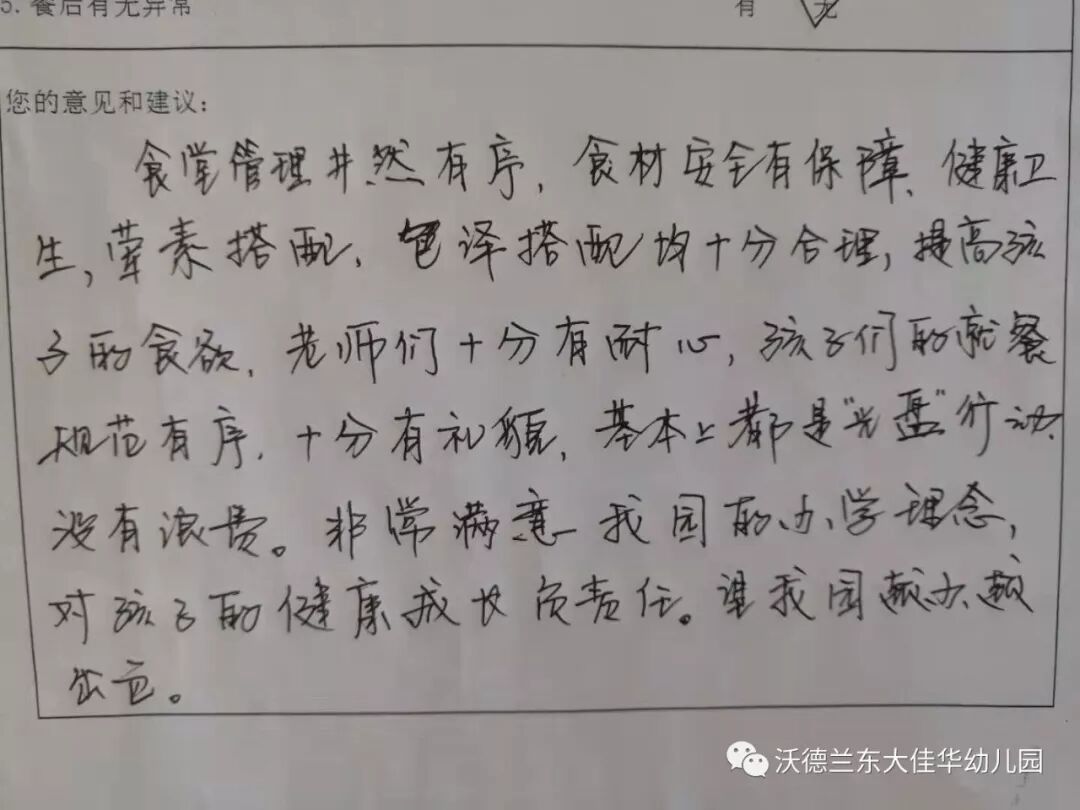 5. 餐后有无异常 有 无
您的意见和建议：
食堂管理井然有序，食材安全有保障、健康卫
生，荤素搭配，色泽搭配均十分合理，提高孩
子的食欲，老师们十分有耐心，孩子们的就餐
规范有序，十分有礼貌，基本上都是"光盘"行动，
没有浪费。非常满意我园的办学理念，
对孩子的健康成长负责任。望我园越办越
出色。
沃德兰东大佳华幼儿园